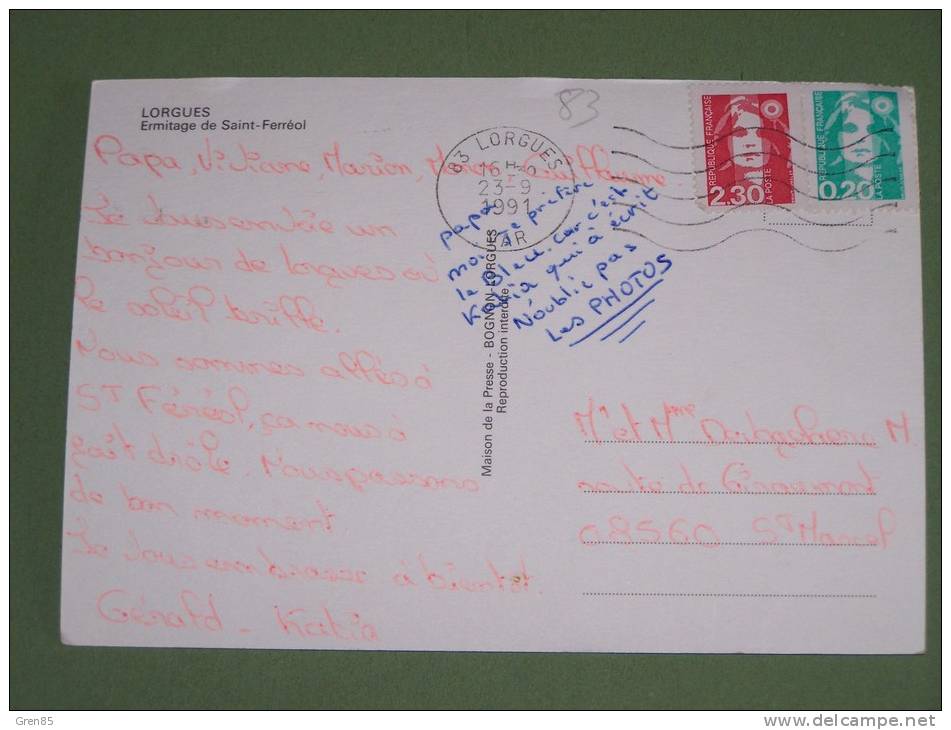 LORGUES
Ermitage de Saint-Ferréol
83
83 LORGUES
16H
23-9
1991
VAR
REPUBLIQUE FRANÇAISE
LA POSTE
2.30
REPUBLIQUE FRANÇAISE
LA POSTE
0,20
Papa, Viviane, Marion, Guillaume
Je vous envoie un
bonjour de Lorgues où
le soleil brille.
Nous sommes allés à
ST Féréol, ça nous à
fait drôle. Nous passons
de bon moment
Je vous embrasse à bientot.
Gérald - Katia
papa
moi je préfère
le bleu. car c'est
Katia qui à écrit
N'oublie pas
Les PHOTOS
Maison de la Presse - BOGNON-LORGUES
Reproduction interdite
Mr et Mme M.
route de
08560 ST Marcel
Gren85
delcampe.net